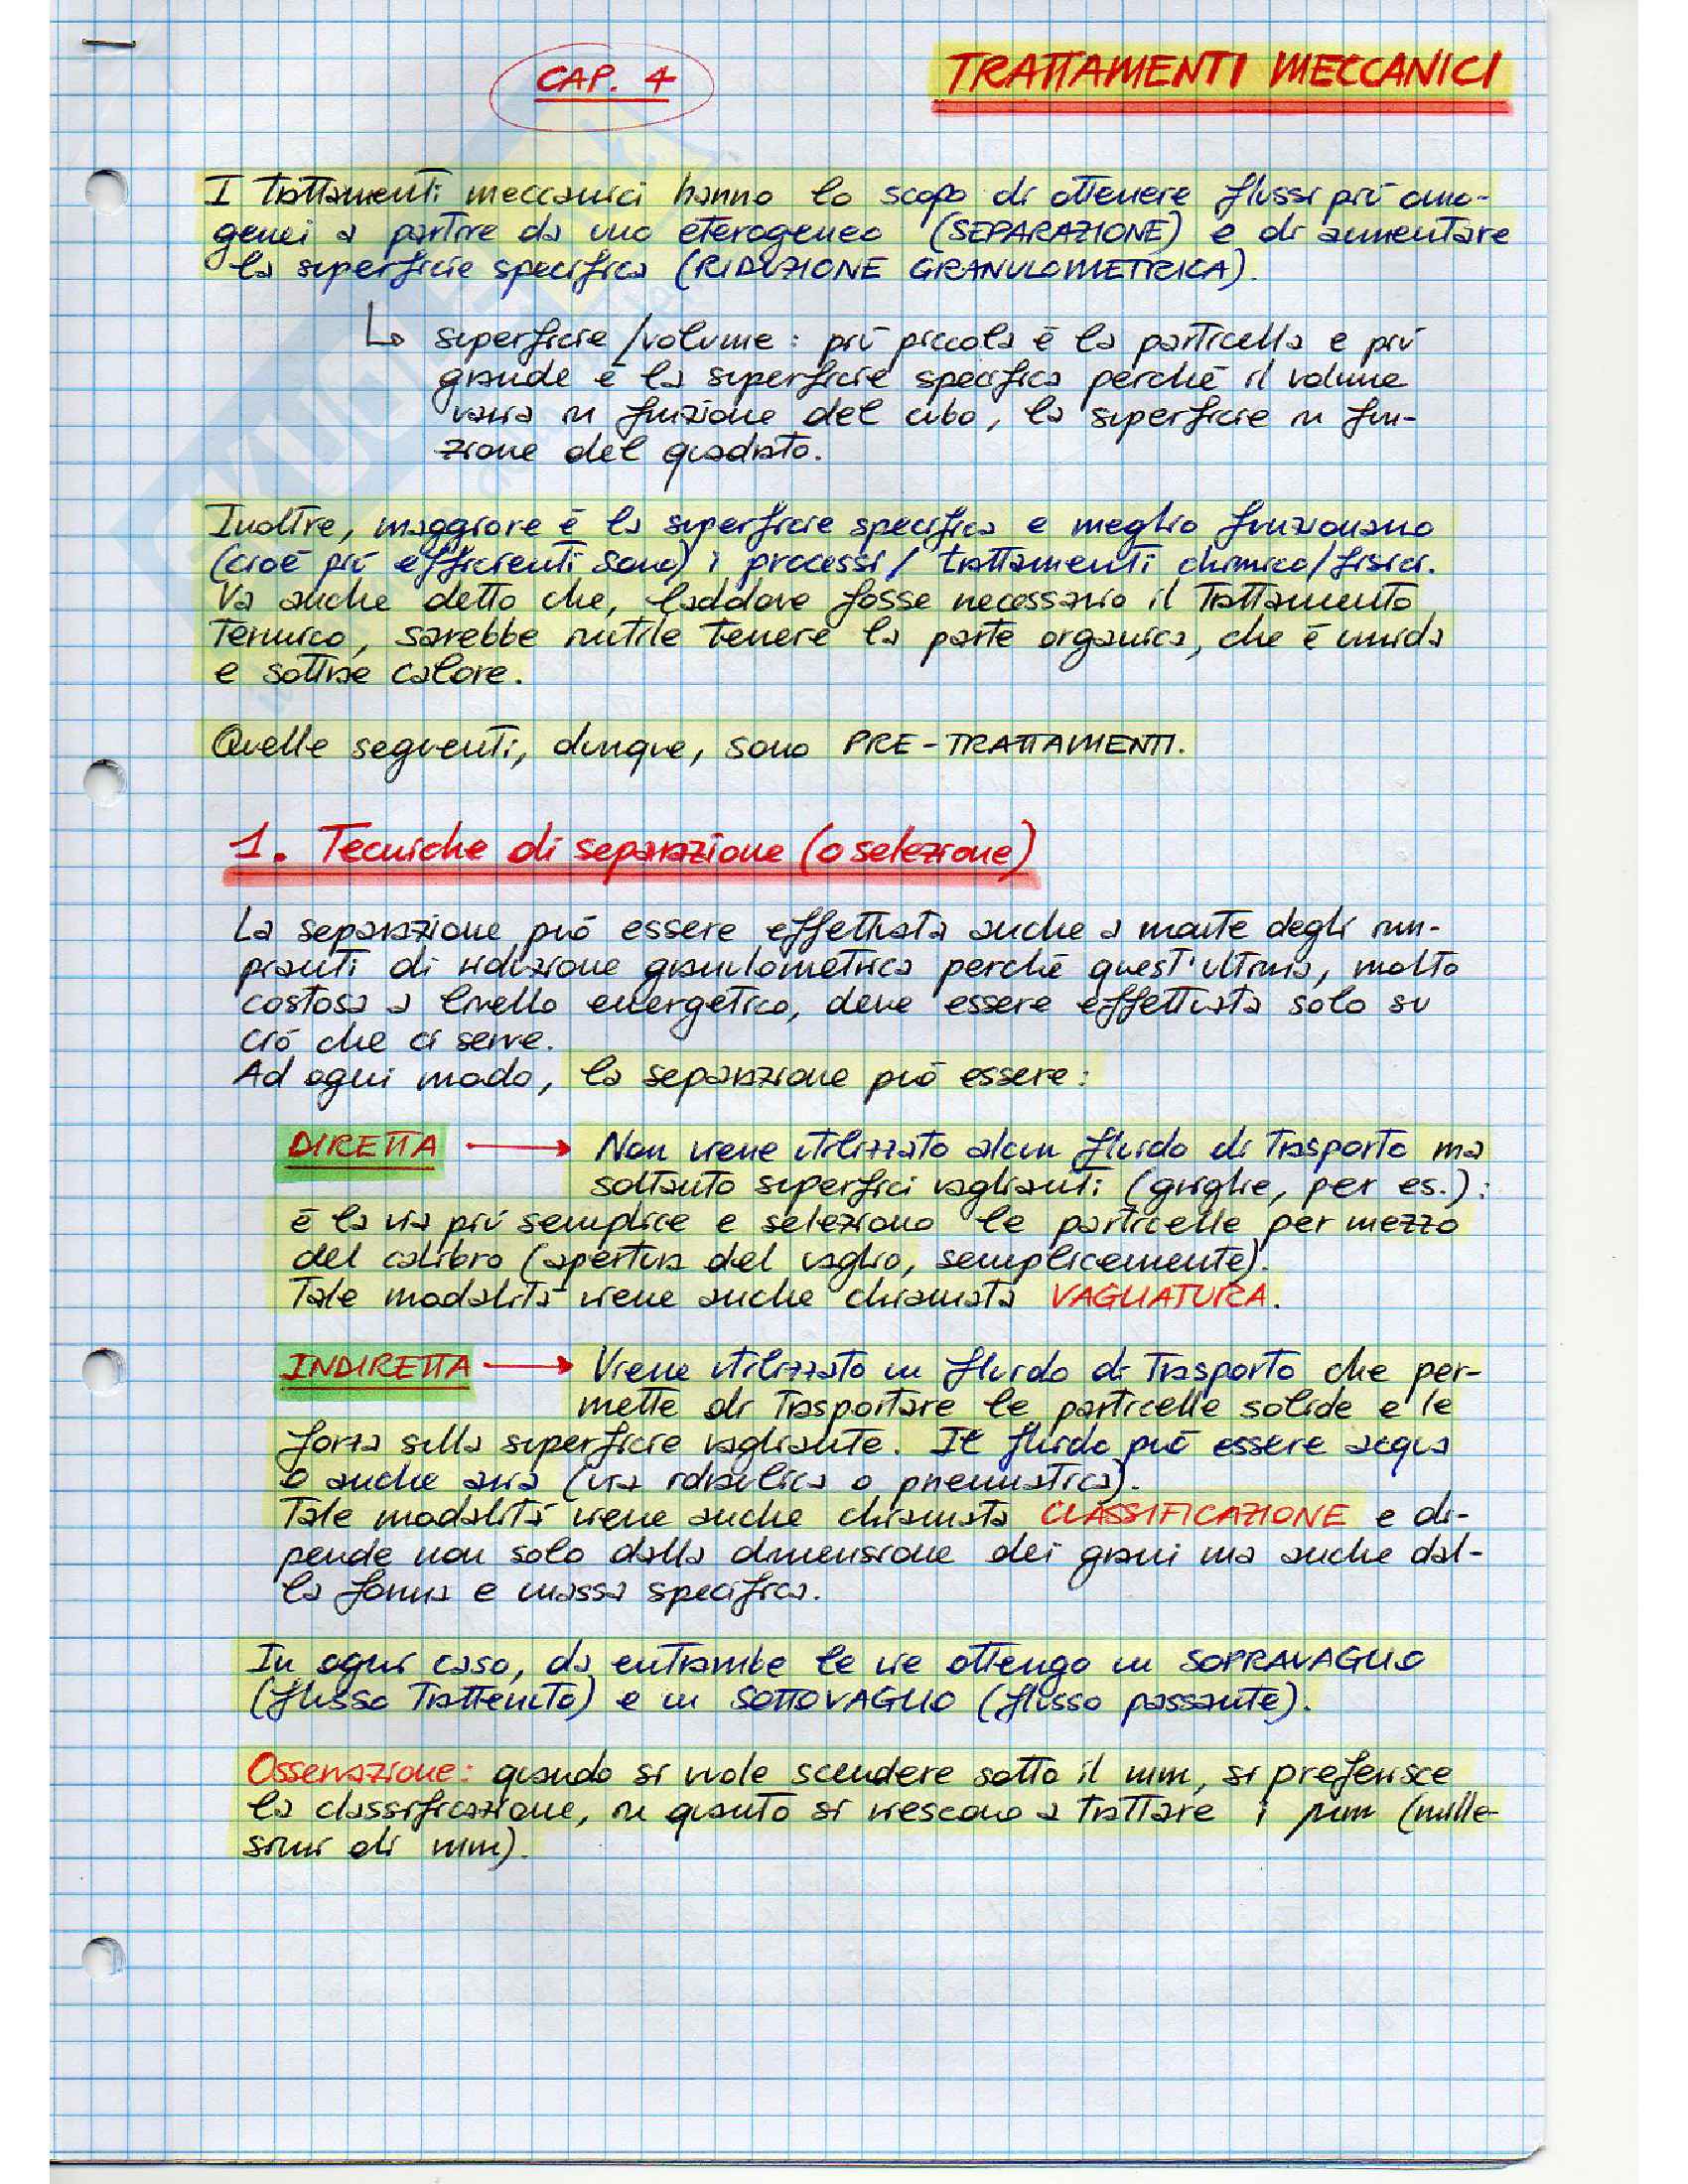 CAP. 4
TRATTAMENTI MECCANICI
I trattamenti meccanici hanno lo scopo di ottenere flussi più omo-
genei a partire da uno eterogeneo (SEPARAZIONE) e di aumentare
la superficie specifica (RIDUZIONE GRANULOMETRICA).
↳ superficie/volume: più piccola è la particella e più
grande è la superficie specifica perché il volume
varia in funzione del cubo, la superficie in fun-
zione del quadrato.
Inoltre, maggiore è la superficie specifica e meglio funzionano
(cioè più efficienti sono) i processi/trattamenti chimico/fisici.
Va anche detto che, laddove fosse necessario il trattamento
termico, sarebbe inutile tenere la parte organica, che è umida
e sottrae calore.
Quelle seguenti, dunque, sono PRE-TRATTAMENTI.
1. Tecniche di separazione (o selezione)
La separazione può essere effettuata anche a monte degli im-
pianti di riduzione granulometrica perché quest'ultima, molto
costosa a livello energetico, deve essere effettuata solo su
ciò che ci serve.
Ad ogni modo, la separazione può essere:
DIRETTA → Non viene utilizzato alcun fluido di trasporto ma
soltanto superfici vaglianti (griglie, per es.):
è la via più semplice e seleziono le particelle per mezzo
del calibro (apertura del vaglio, semplicemente).
Tale modalità viene anche chiamata VAGLIATURA.
INDIRETTA → Viene utilizzato un fluido di trasporto che per-
mette di trasportare le particelle solide e le
forza sulla superficie vagliante. Il fluido può essere acqua
o anche aria (via idraulica o pneumatica).
Tale modalità viene anche chiamata CLASSIFICAZIONE e di-
pende non solo dalla dimensione dei grani ma anche dal-
la forma e massa specifica.
In ogni caso, da entrambe le vie ottengo un SOPRAVAGLIO
(flusso trattenuto) e un SOTTOVAGLIO (flusso passante).
Osservazione: quando si vuole scendere sotto il mm, si preferisce
la classificazione, in quanto si riescono a trattare i μm (mille-
simi di mm).